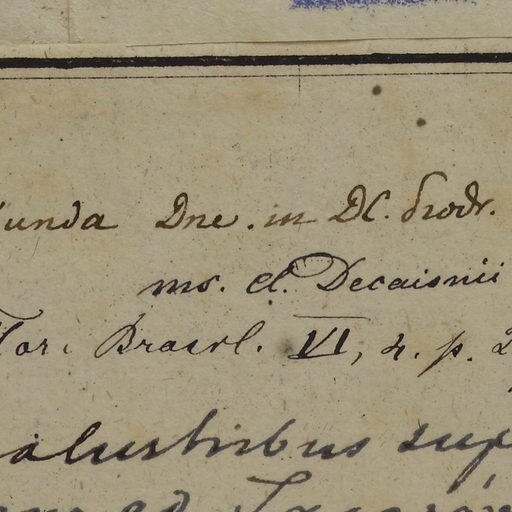 unda Dne. in DC. Prodr.
ms. cl. Decaisnii
Bras<il. VI, 4. p. 2
alustribus sup
ad